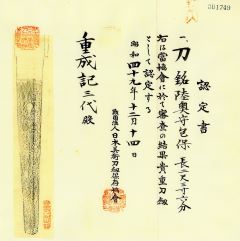 001749
認定書
一、刀 銘 陸奥守包保 長二尺三寸六分
右は當協會に於て審査の結果貴重刀剣
として認定する
昭和四十九年十二月十四日
財団法人日本美術刀剣保存協會
重成記三代殿